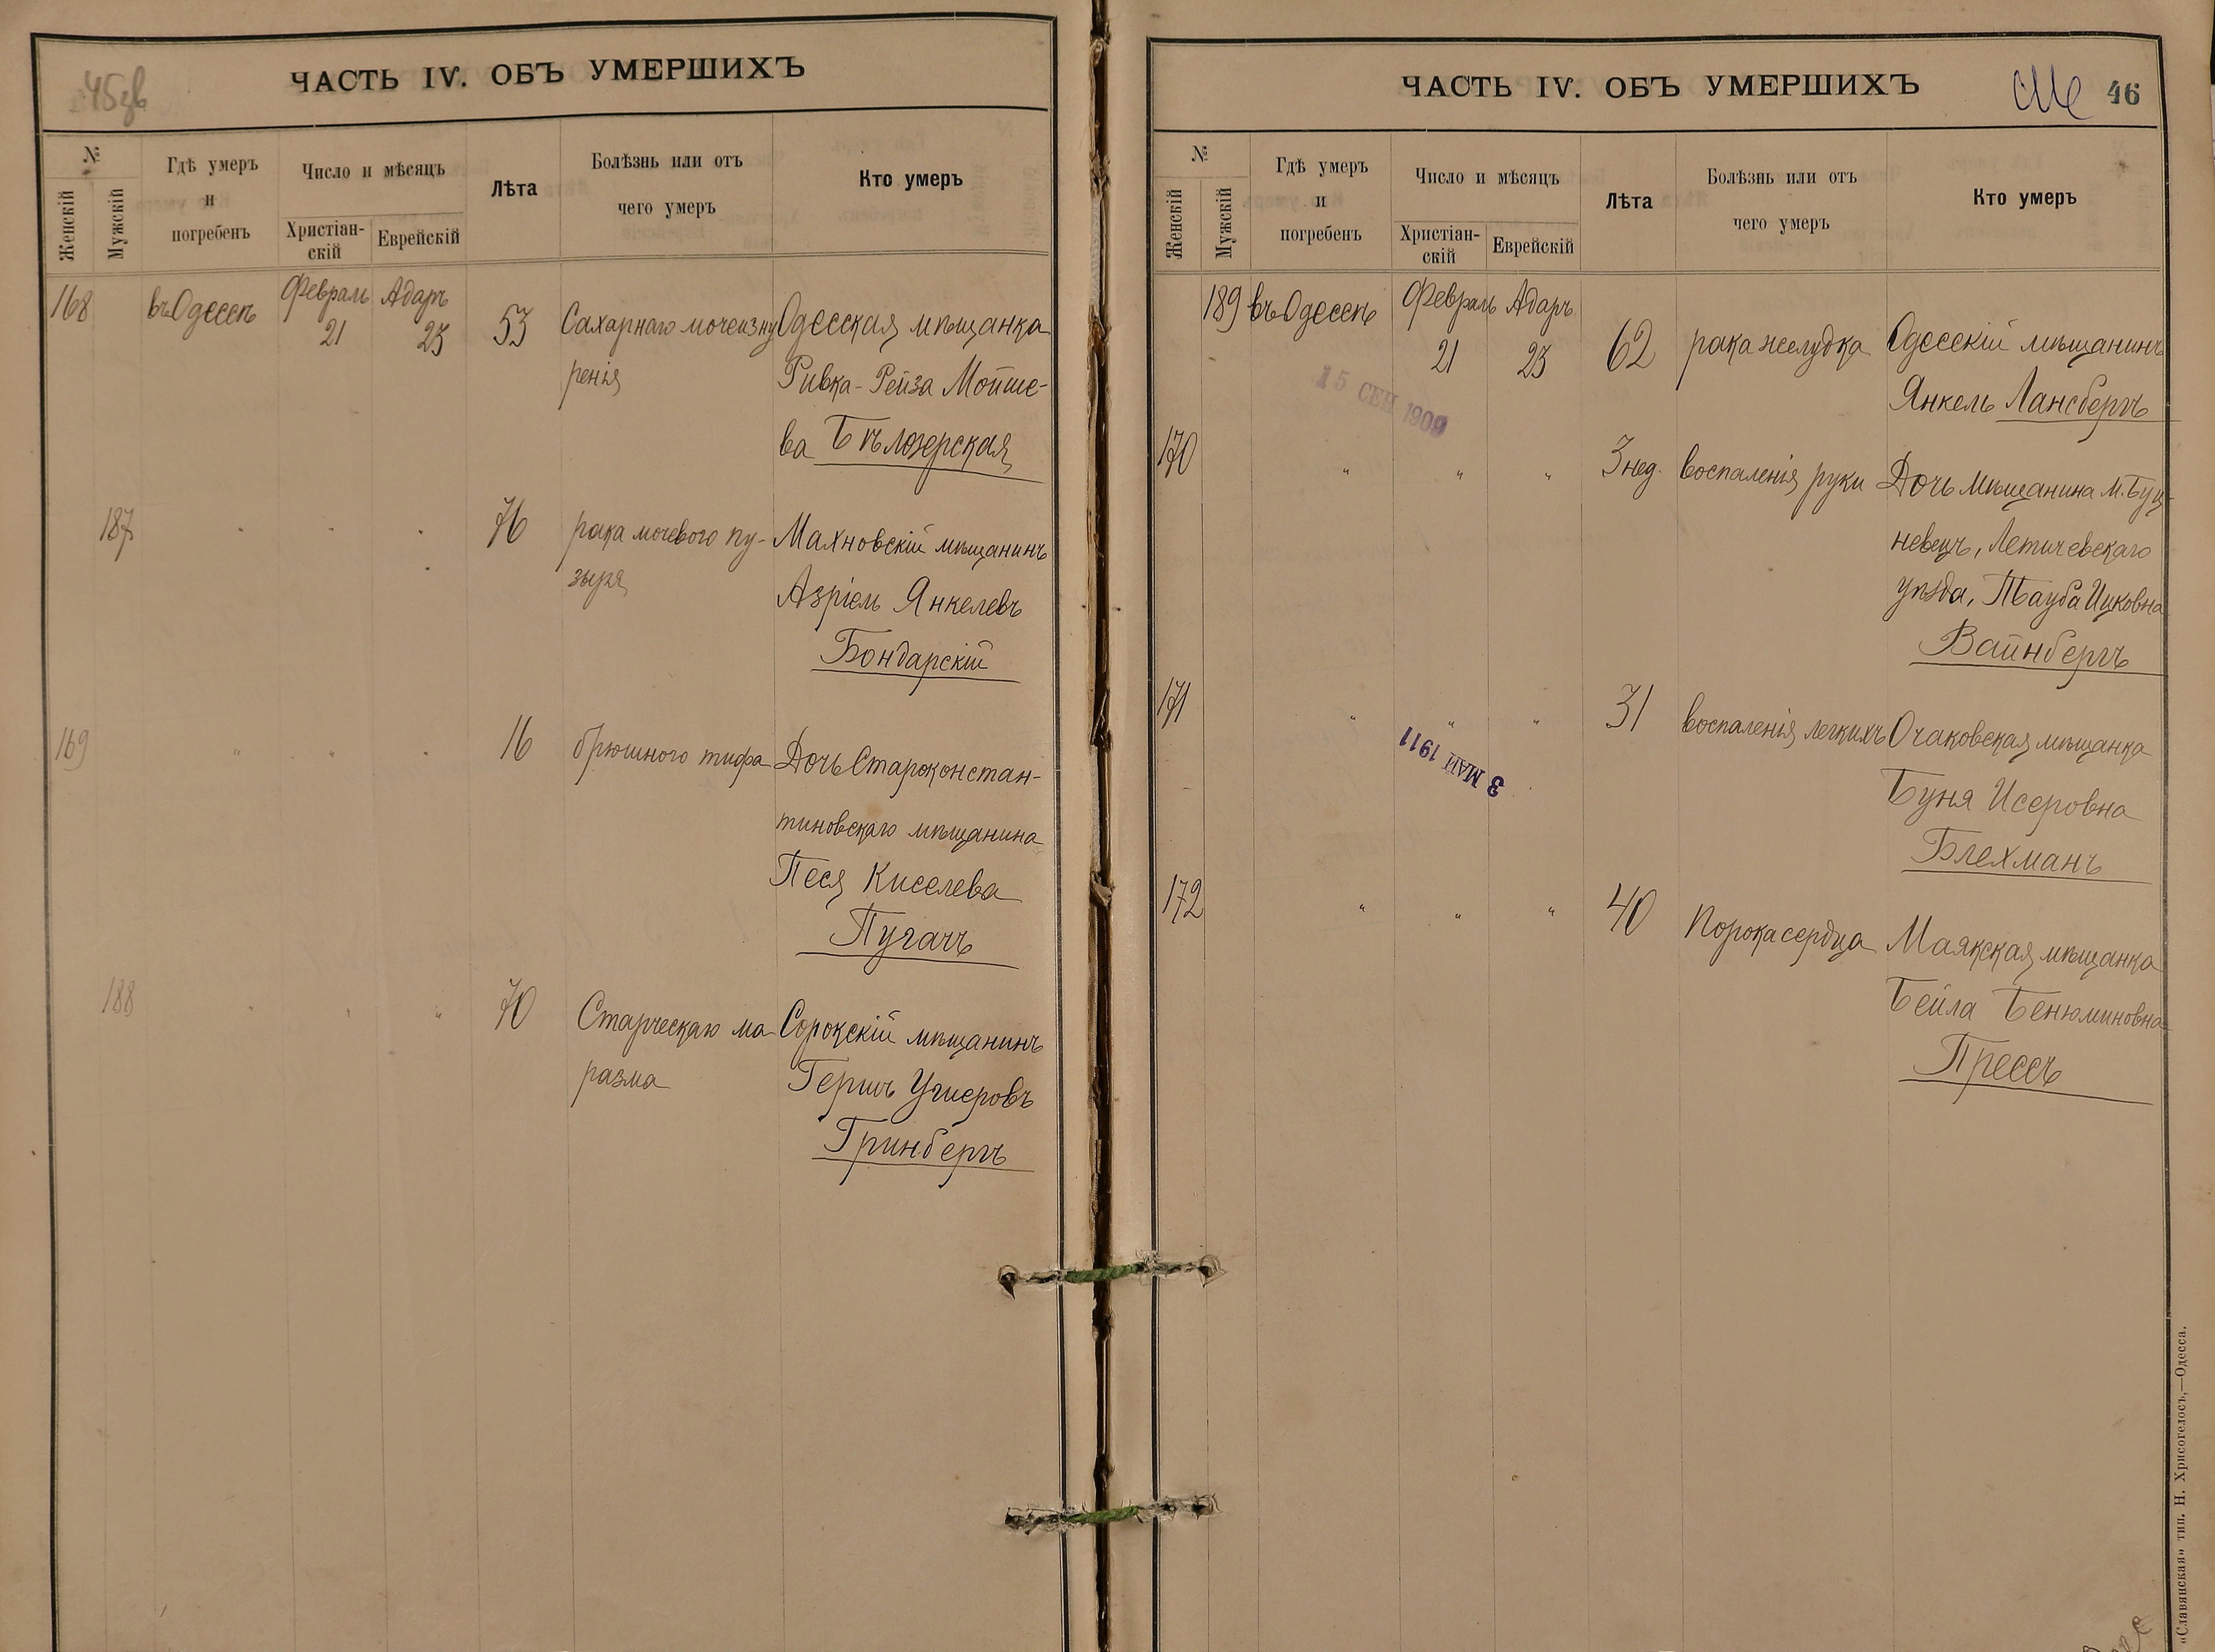 45зв
ЧАСТЬ IV. ОБЪ УМЕРШИХЪ
№
Женскій
Мужскій
Гдѣ умеръ
и
погребенъ
Число и мѣсяцъ
Христіан-
скій
Еврейскій
Лѣта
Болѣзнь или отъ
чего умеръ
Кто умеръ
168 въ Одессѣ Февраль 21 Адаръ 23 53 Сахарнаго мочеизну Одесская мѣщанка
ренія Ривка-Рейза Мойше-
ва Бѣлозерская
187 " " " 76 рака мочевого пу- Махновскій мѣщанинъ
зыря Азріель Янкелевъ
Бондарскій
169 " " " 16 брюшного тифа Дочь Староконстан-
тиновскаго мѣщанина
Песя Киселева
Пугачъ
188 " " " 70 Старческаго ма- Сорокскій мѣщанинъ
разма Гершъ Ушеровъ
Гринбергъ
ЧАСТЬ IV. ОБЪ УМЕРШИХЪ
46
№
Женскій
Мужскій
Гдѣ умеръ
и
погребенъ
Число и мѣсяцъ
Христіан-
скій
Еврейскій
Лѣта
Болѣзнь или отъ
чего умеръ
Кто умеръ
189 въ Одессѣ Февраль 21 Адаръ 23 62 рака желудка Одесскій мѣщанинъ
Янкель Лансбергъ
15 СЕН 1909
170 " " " 3 нед. воспаленія руки Дочь мѣщанина м. Буц-
невецъ, Летичевскаго
уѣзда, Тауба Ицковна
Вайнбергъ
171 " " " 31 воспаленія легкихъ Очаковская мѣщанка
Буня Исеровна
Блехманъ
3 МАЙ 1911
172 " " " 40 Порока сердца Маякская мѣщанка
Бейла Бенюминовна
Прессъ
«Славянская» тип. Н. Хрисогелосъ,—Одесса.